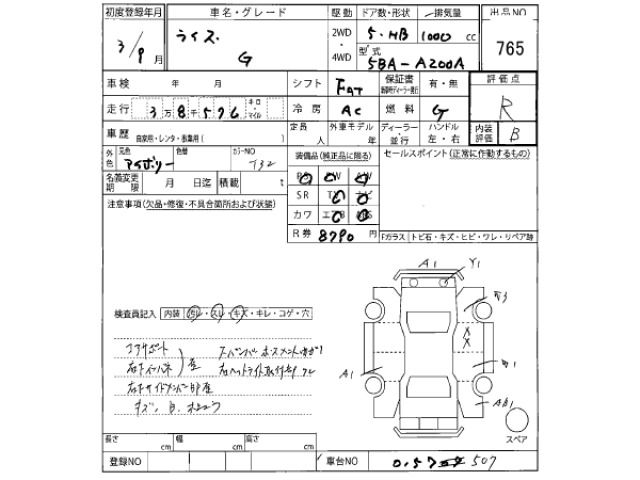 初度登録年月 車名・グレード 駆動 ドア数・形状 排気量 出品NO
3/9月 ライズ G 2WD・4WD 5・HB 1000 cc 765
型式 5BA-A200A
車検 年 月 シフト FAT 保証書 有・無 評価点 R
走行 3万8千576 キロ・マイル 冷房 AC 燃料 G
車歴 自家用・レンタ・事業用( ) 定員 人 外車モデル 年 ディーラー・並行 ハンドル 左・右 内装評価 B
外色 元色 アイボリー 色替 カラーNO T32 装備品(純正品に限る) セールスポイント(正常に作動するもの)
名義変更期限 月 日迄 積載 t PS PW
SR
注意事項(欠品・修復・不具合箇所および状態) カワ エアB ABS
R券 8790 円 Fガラス トビ石・キズ・ヒビ・ワレ・リペア跡
A1 Y1
検査員記入 内装 汚レ・スレ・キズ・キレ・コゲ・穴
コアサポート
A1
右サイドメンバー
キズ、
AB1
スペア
長さ cm 幅 cm 高さ cm
登録NO 車台NO 507